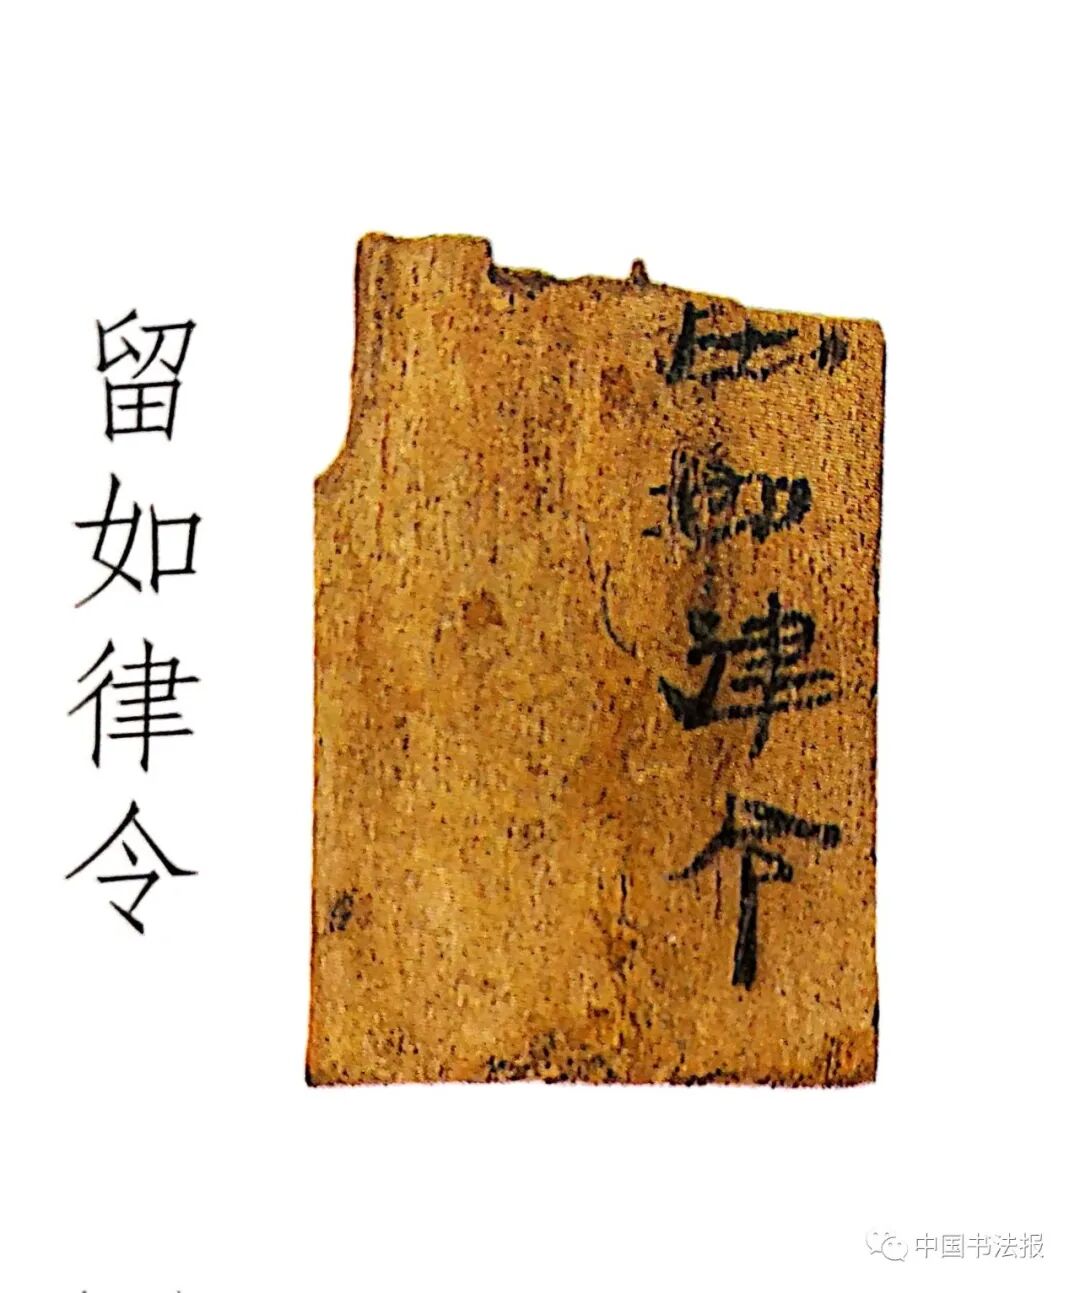 如律令
留如律令
中国书法报